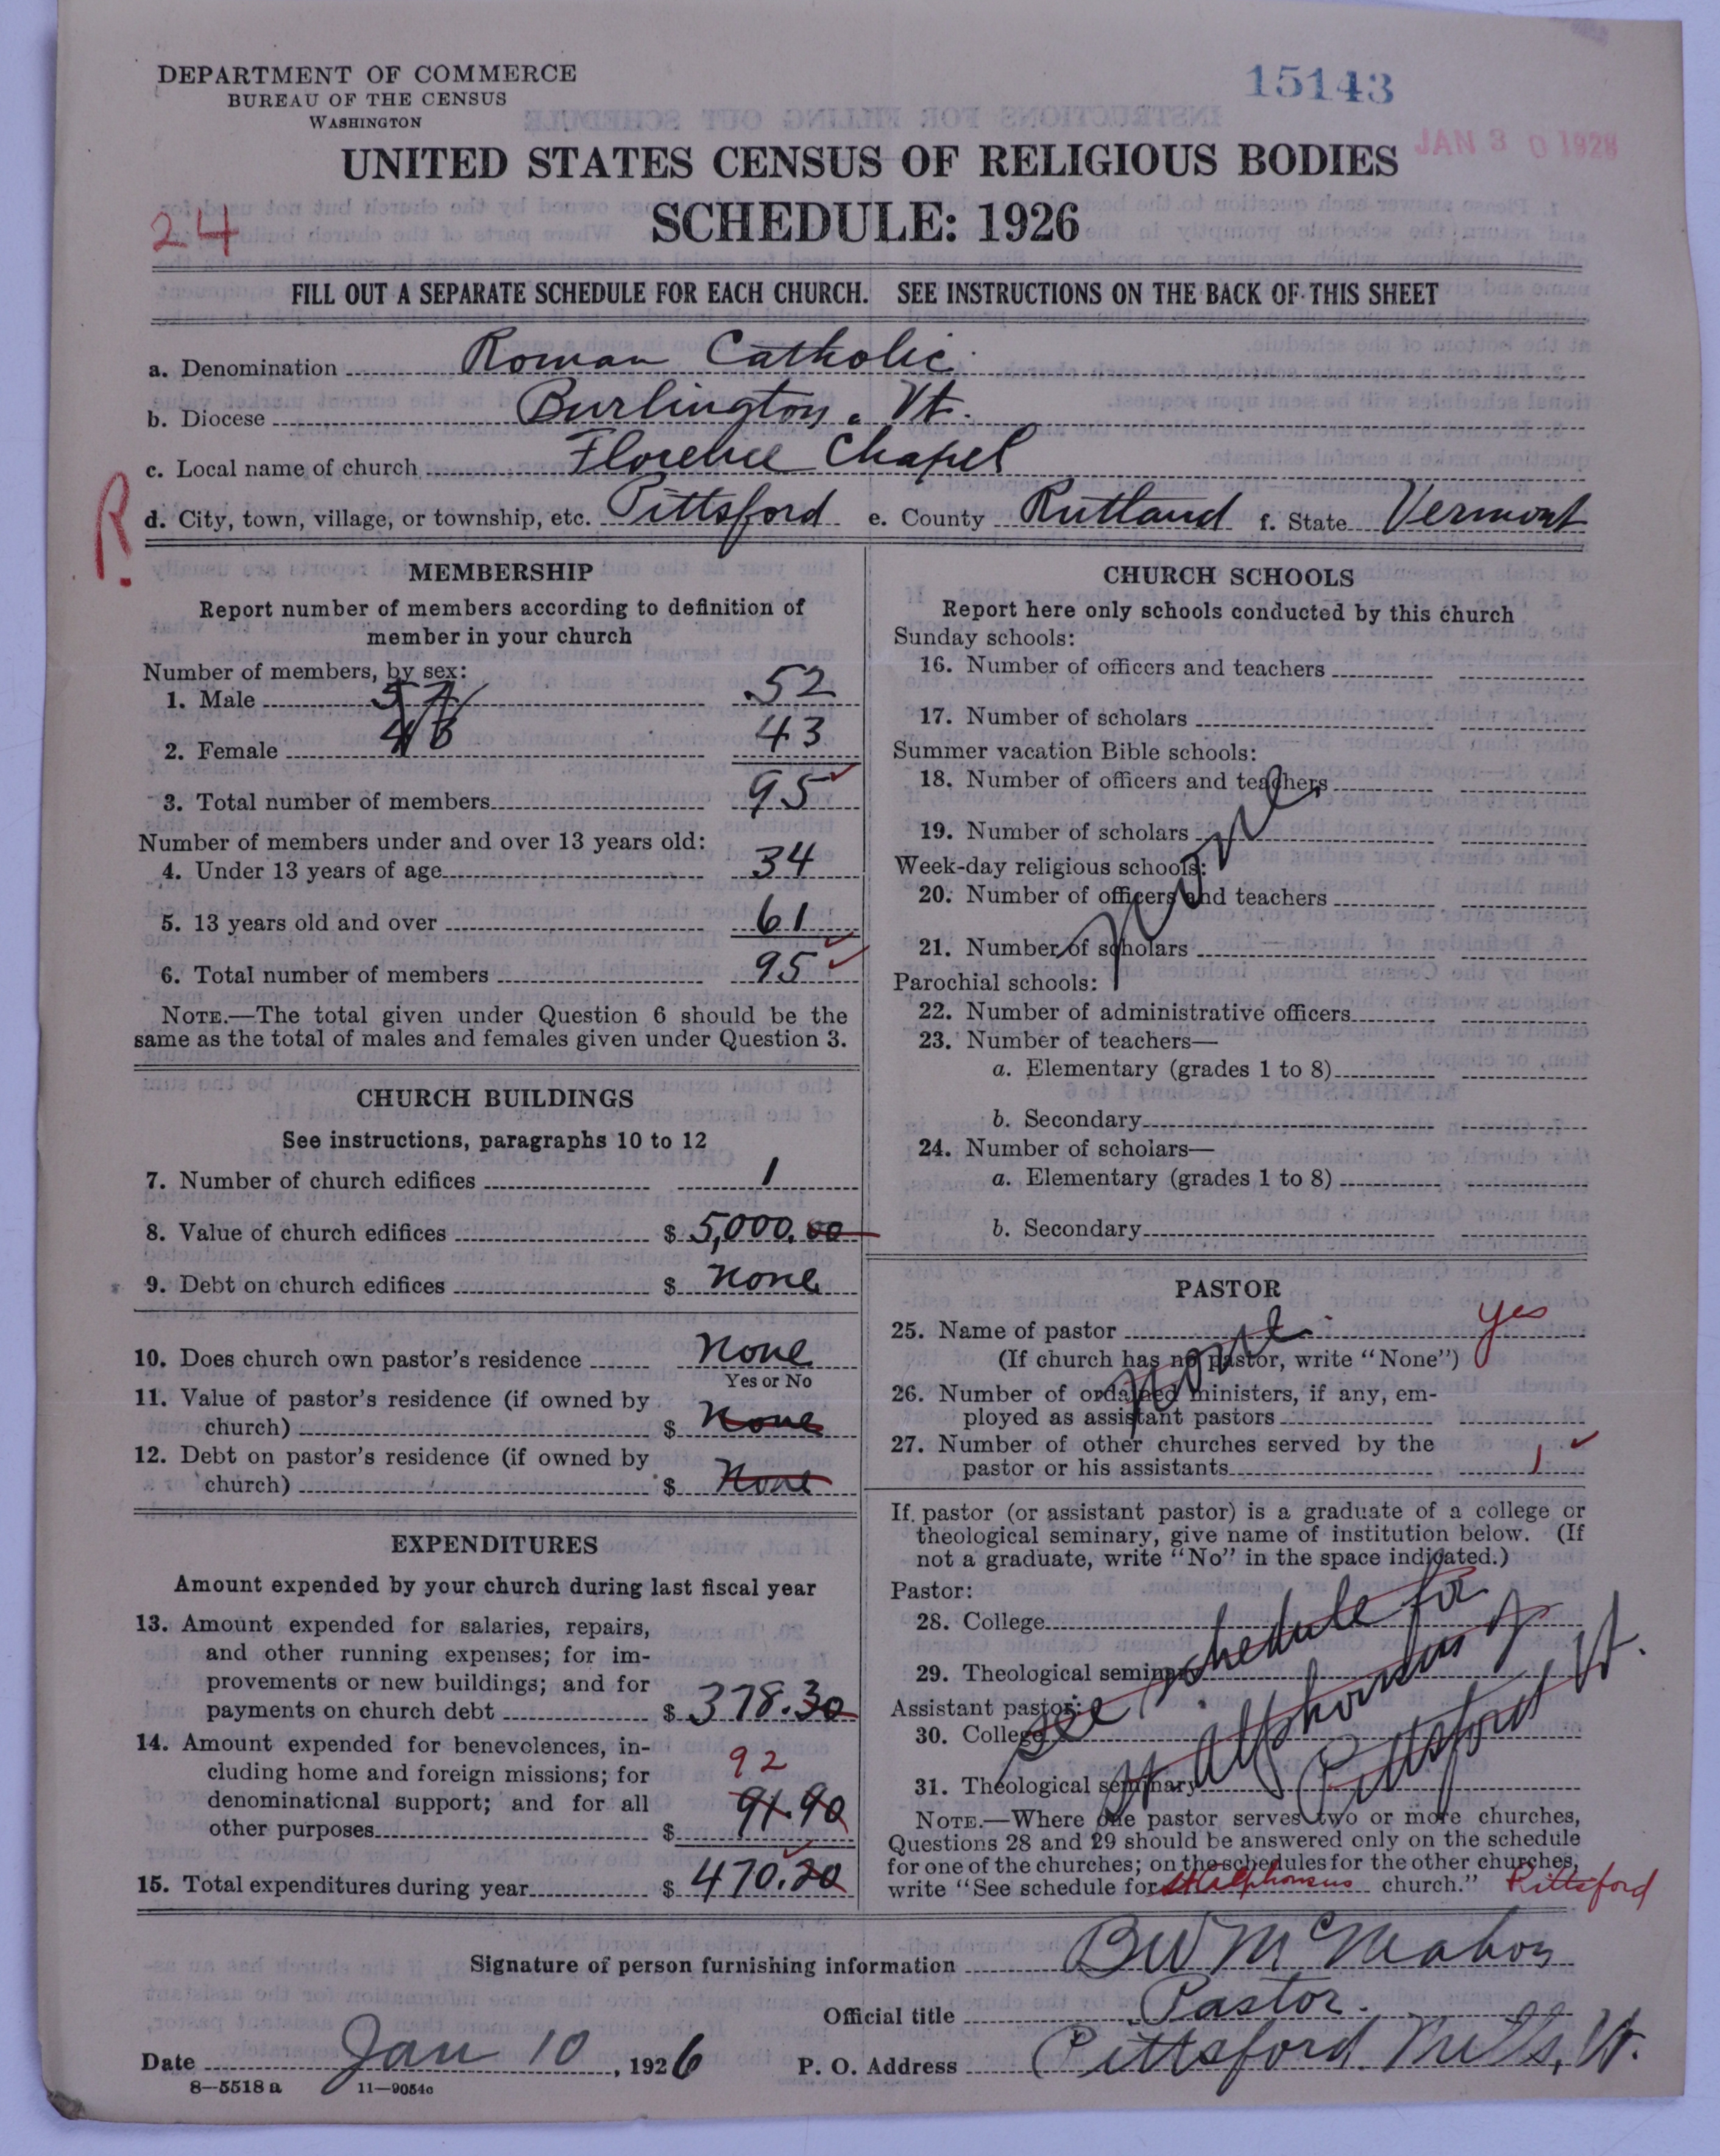 DEPARTMENT OF COMMERCE
BUREAU OF THE CENSUS
WASHINGTON
15143
JAN 30 1928
UNITED STATES CENSUS OF RELIGIOUS BODIES
24
SCHEDULE: 1926
FILL OUT A SEPARATE SCHEDULE FOR EACH CHURCH. SEE INSTRUCTIONS ON THE BACK OF THIS SHEET
a. Denomination Roman Catholic
b. Diocese Burlington, Vt.
c. Local name of church Florence Chapel
R.
d. City, town, village, or township, etc. Pittsford e. County Rutland f. State Vermont
MEMBERSHIP
Report number of members according to definition of
member in your church
Number of members, by sex:
1. Male 52
2. Female 43
3. Total number of members 95
Number of members under and over 13 years old:
4. Under 13 years of age 34
5. 13 years old and over 61
6. Total number of members 95
NOTE.—The total given under Question 6 should be the
same as the total of males and females given under Question 3.
CHURCH BUILDINGS
See instructions, paragraphs 10 to 12
7. Number of church edifices 1
8. Value of church edifices $ 5,000.00
9. Debt on church edifices $ none
10. Does church own pastor's residence None
Yes or No
11. Value of pastor's residence (if owned by
church) $ None
12. Debt on pastor's residence (if owned by
church) $ None
EXPENDITURES
Amount expended by your church during last fiscal year
13. Amount expended for salaries, repairs,
and other running expenses; for im-
provements or new buildings; and for
payments on church debt $ 378.30
14. Amount expended for benevolences, in-
cluding home and foreign missions; for 92
denominational support; and for all 91.90
other purposes $
15. Total expenditures during year $ 470.20
CHURCH SCHOOLS
Report here only schools conducted by this church
Sunday schools:
16. Number of officers and teachers
17. Number of scholars
Summer vacation Bible schools:
18. Number of officers and teachers
19. Number of scholars
None
Week-day religious schools:
20. Number of officers and teachers
21. Number of scholars
Parochial schools:
22. Number of administrative officers
23. Number of teachers—
a. Elementary (grades 1 to 8)
b. Secondary
24. Number of scholars—
a. Elementary (grades 1 to 8)
b. Secondary
PASTOR
25. Name of pastor None yes
(If church has no pastor, write "None")
26. Number of ordained ministers, if any, em-
ployed as assistant pastors
27. Number of other churches served by the
pastor or his assistants 1
If pastor (or assistant pastor) is a graduate of a college or
theological seminary, give name of institution below. (If
not a graduate, write "No" in the space indicated.)
Pastor:
28. College
29. Theological seminary
Assistant pastor:
30. College
31. Theological seminary
See schedule for
St Alphonsus
Pittsford Vt.
NOTE.—Where one pastor serves two or more churches,
Questions 28 and 29 should be answered only on the schedule
for one of the churches; on the schedules for the other churches,
write "See schedule for St Alphonsus church." Pittsford
Signature of person furnishing information BW McMahon
Official title Pastor.
Date Jan 10, 1926 P. O. Address Pittsford Mills, Vt.
8—5518 a 11—9054c